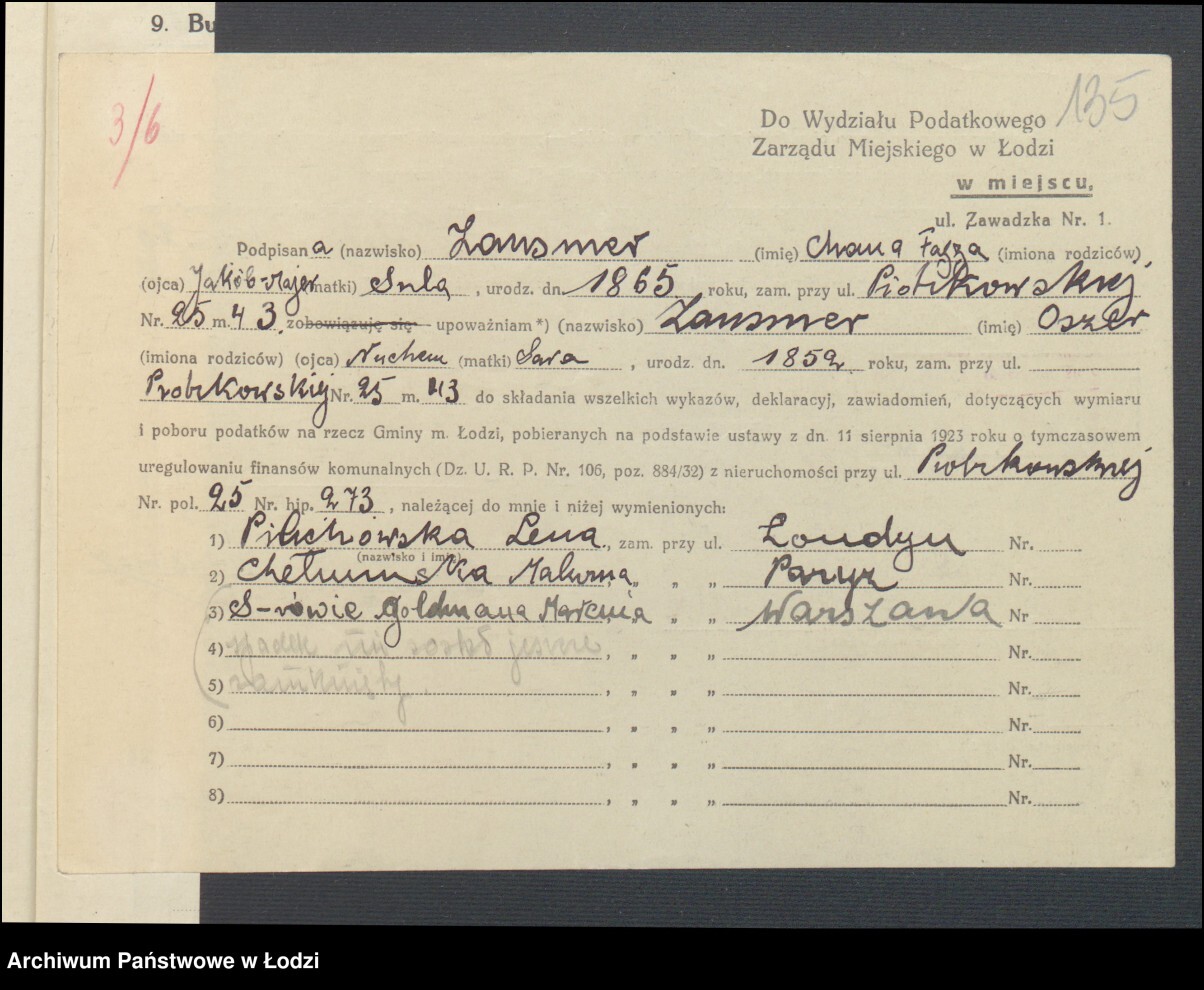 9. Bu
3/6
135
Do Wydziału Podatkowego
Zarządu Miejskiego w Łodzi
w miejscu,
ul. Zawadzka Nr. 1.
Podpisana (nazwisko) Zausmer (imię) Chana Fajga (imiona rodziców)
(ojca) Jakób-Majer matki) Sula, urodz. dn. 1865 roku, zam. przy ul. Piotrkowskiej
Nr. 25 m. 43, zobowiązuję się upoważniam*) (nazwisko) Zausmer (imię) Oszer
(imiona rodziców) (ojca) Nuchem (matki) Sara, urodz. dn. 1852 roku, zam. przy ul.
Piotrkowskiej Nr. 25 m. 43 do składania wszelkich wykazów, deklaracyj, zawiadomień, dotyczących wymiaru
i poboru podatków na rzecz Gminy m. Łodzi, pobieranych na podstawie ustawy z dn. 11 sierpnia 1923 roku o tymczasowem
uregulowaniu finansów komunalnych (Dz. U. R. P. Nr. 106, poz. 884/32) z nieruchomości przy ul. Piotrkowskiej
Nr. pol. 25 Nr. hip. 273, należącej do mnie i niżej wymienionych:
1) Lena, zam. przy ul. Londyn Nr.
(nazwisko i imię)
2) „ „ „ Paryż Nr.
3) S-rowie Goldmana „ „ „ Warszawa Nr
4) , „ „ „ Nr.
5) , „ „ „ Nr.
6) , „ „ „ Nr.
7) , „ „ „ Nr.
8) , „ „ „ Nr.
Archiwum Państwowe w Łodzi